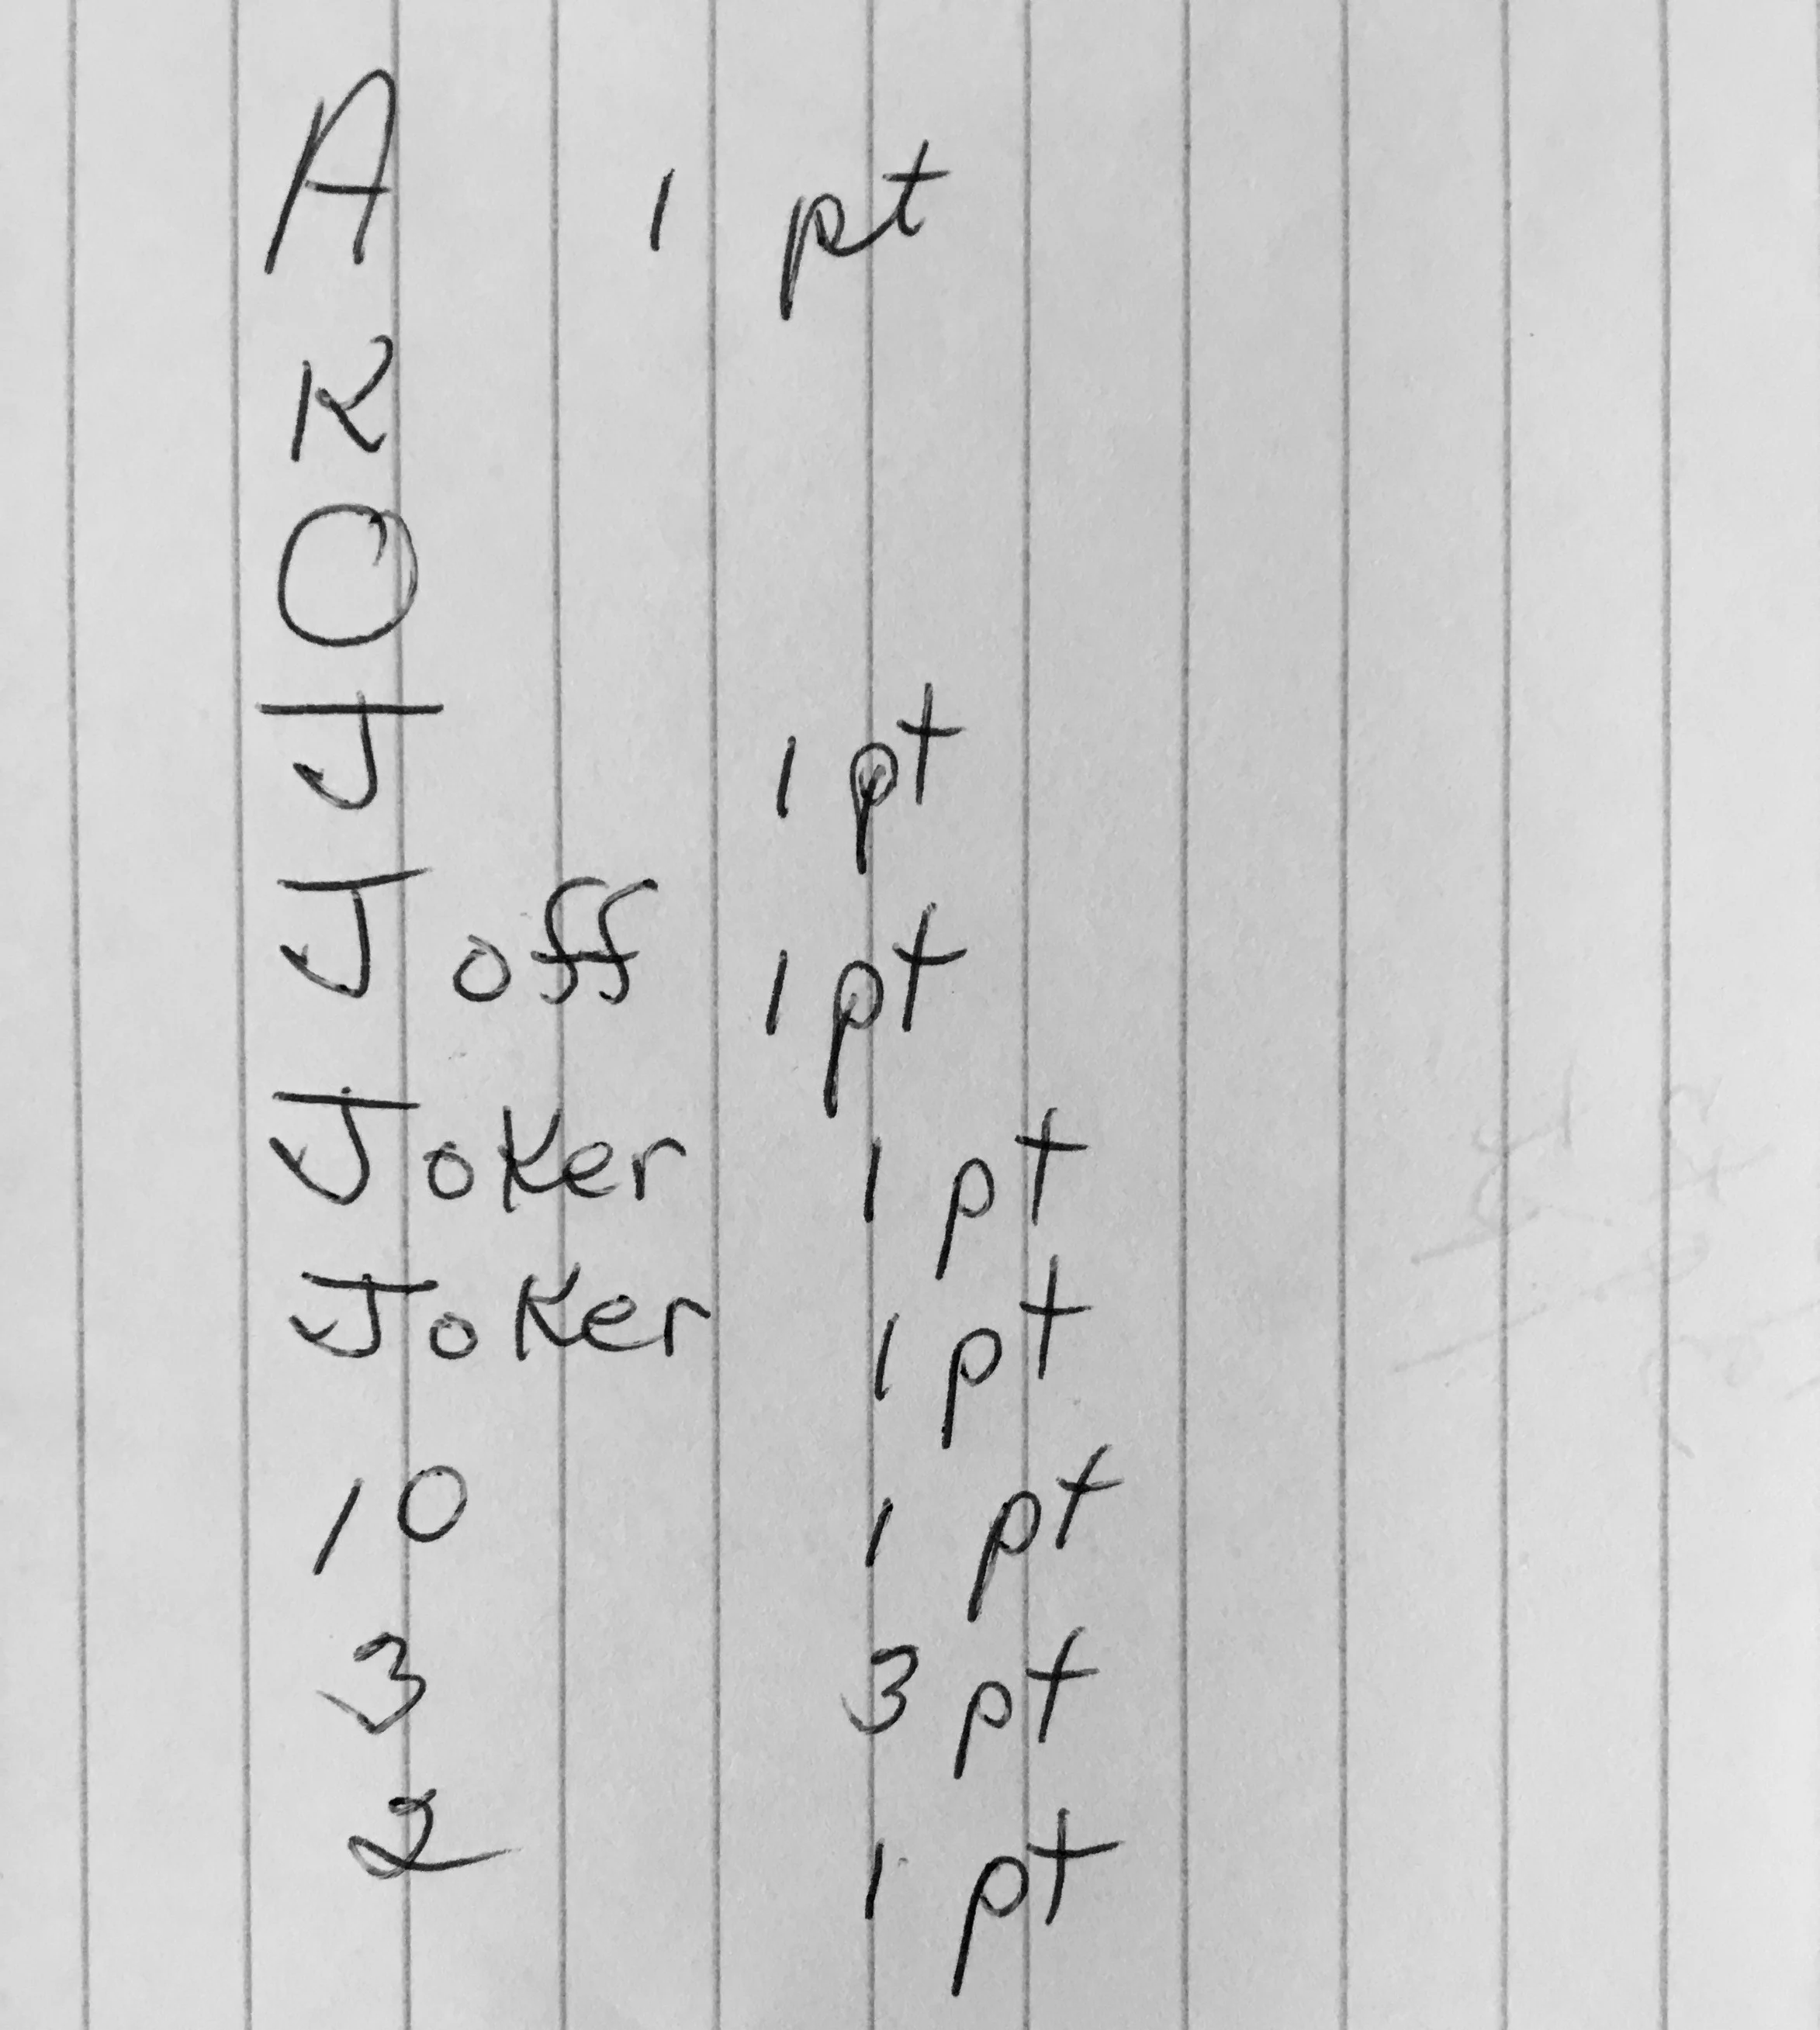 A 1 pt
K
Q
J 1 pt
J off 1 pt
Joker 1 pt
Joker 1 pt
10 1 pt
3 3 pt
2 1 pt